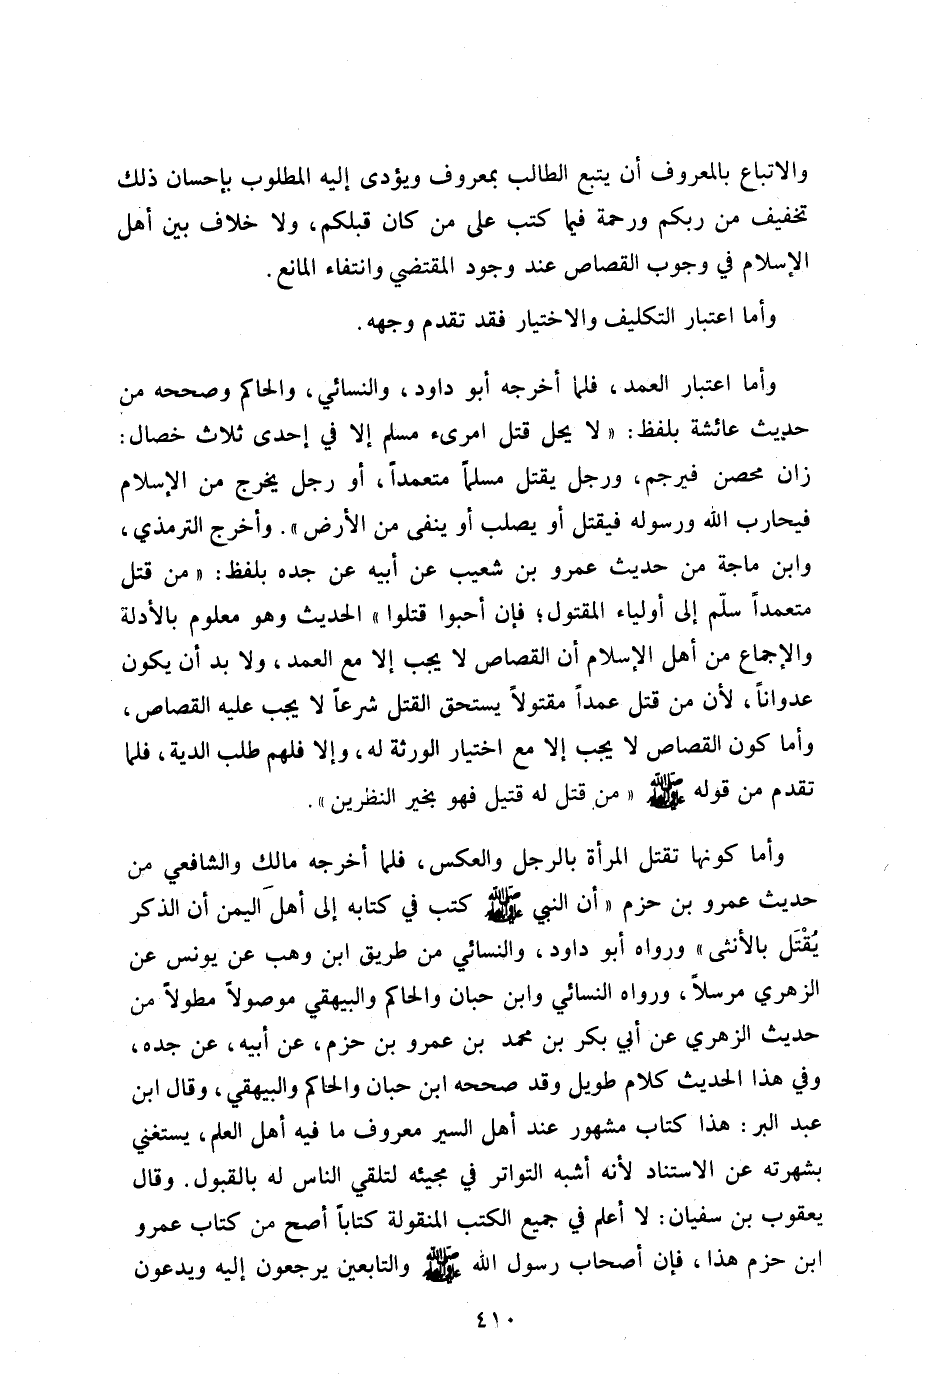 والاتباع بالمعروف أن يتبع الطالب بمعروف ويؤدى إليه المطلوب بإحسان ذلك
تخفيف من ربكم ورحمة فيما كتب على من كان قبلكم، ولا خلاف بين أهل
الإسلام في وجوب القصاص عند وجود المقتضي وانتفاء المانع.
وأما اعتبار التكليف والاختيار فقد تقدم وجهه.
وأما اعتبار العمد، فلما أخرجه أبو داود، والنسائي، والحاكم وصححه من
حديث عائشة بلفظ: « لا يحل قتل امرىء مسلم إلا في إحدى ثلاث خصال:
زان محصن فيرجم، ورجل يقتل مسلماً متعمداً، أو رجل يخرج من الإسلام
فيحارب الله ورسوله فيقتل أو يصلب أو ينفى من الأرض ». وأخرج الترمذي،
وابن ماجة من حديث عمرو بن شعيب عن أبيه عن جده بلفظ: « من قتل
متعمداً سلّم إلى أولياء المقتول؛ فإن أحبوا قتلوا » الحديث وهو معلوم بالأدلة
والإجماع من أهل الإسلام أن القصاص لا يجب إلا مع العمد، ولا بد أن يكون
عدواناً، لأن من قتل عمداً مقتولاً يستحق القتل شرعاً لا يجب عليه القصاص،
وأما كون القصاص لا يجب إلا مع اختيار الورثة له، وإلا فلهم طلب الدية، فلما
تقدم من قوله ﷺ « من قتل له قتيل فهو بخير النظرين ».
وأما كونها تقتل المرأة بالرجل والعكس، فلما أخرجه مالك والشافعي من
حديث عمرو بن حزم « أن النبي ﷺ كتب في كتابه إلى أهل اليمن أن الذكر
يُقْتَل بالأنثى » ورواه أبو داود، والنسائي من طريق ابن وهب عن يونس عن
الزهري مرسلاً، ورواه النسائي وابن حبان والحاكم والبيهقي موصولاً مطولاً من
حديث الزهري عن أبي بكر بن محمد بن عمرو بن حزم، عن أبيه، عن جده،
وفي هذا الحديث كلام طويل وقد صححه ابن حبان والحاكم والبيهقي، وقال ابن
عبد البر: هذا كتاب مشهور عند أهل السير معروف ما فيه أهل العلم، يستغني
بشهرته عن الاستناد لأنه أشبه التواتر في مجيئه لتلقي الناس له بالقبول. وقال
يعقوب بن سفيان: لا أعلم في جميع الكتب المنقولة كتاباً أصح من كتاب عمرو
ابن حزم هذا، فإن أصحاب رسول الله ﷺ والتابعين يرجعون إليه ويدعون
٤١٠